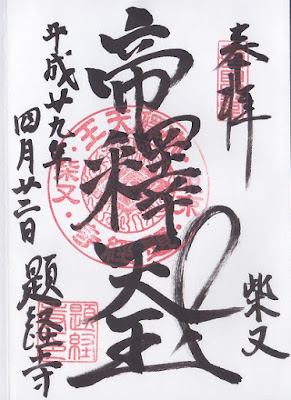 奉拝
柴又
帝釋天王
平成廿九年
四月廿二日
題経寺